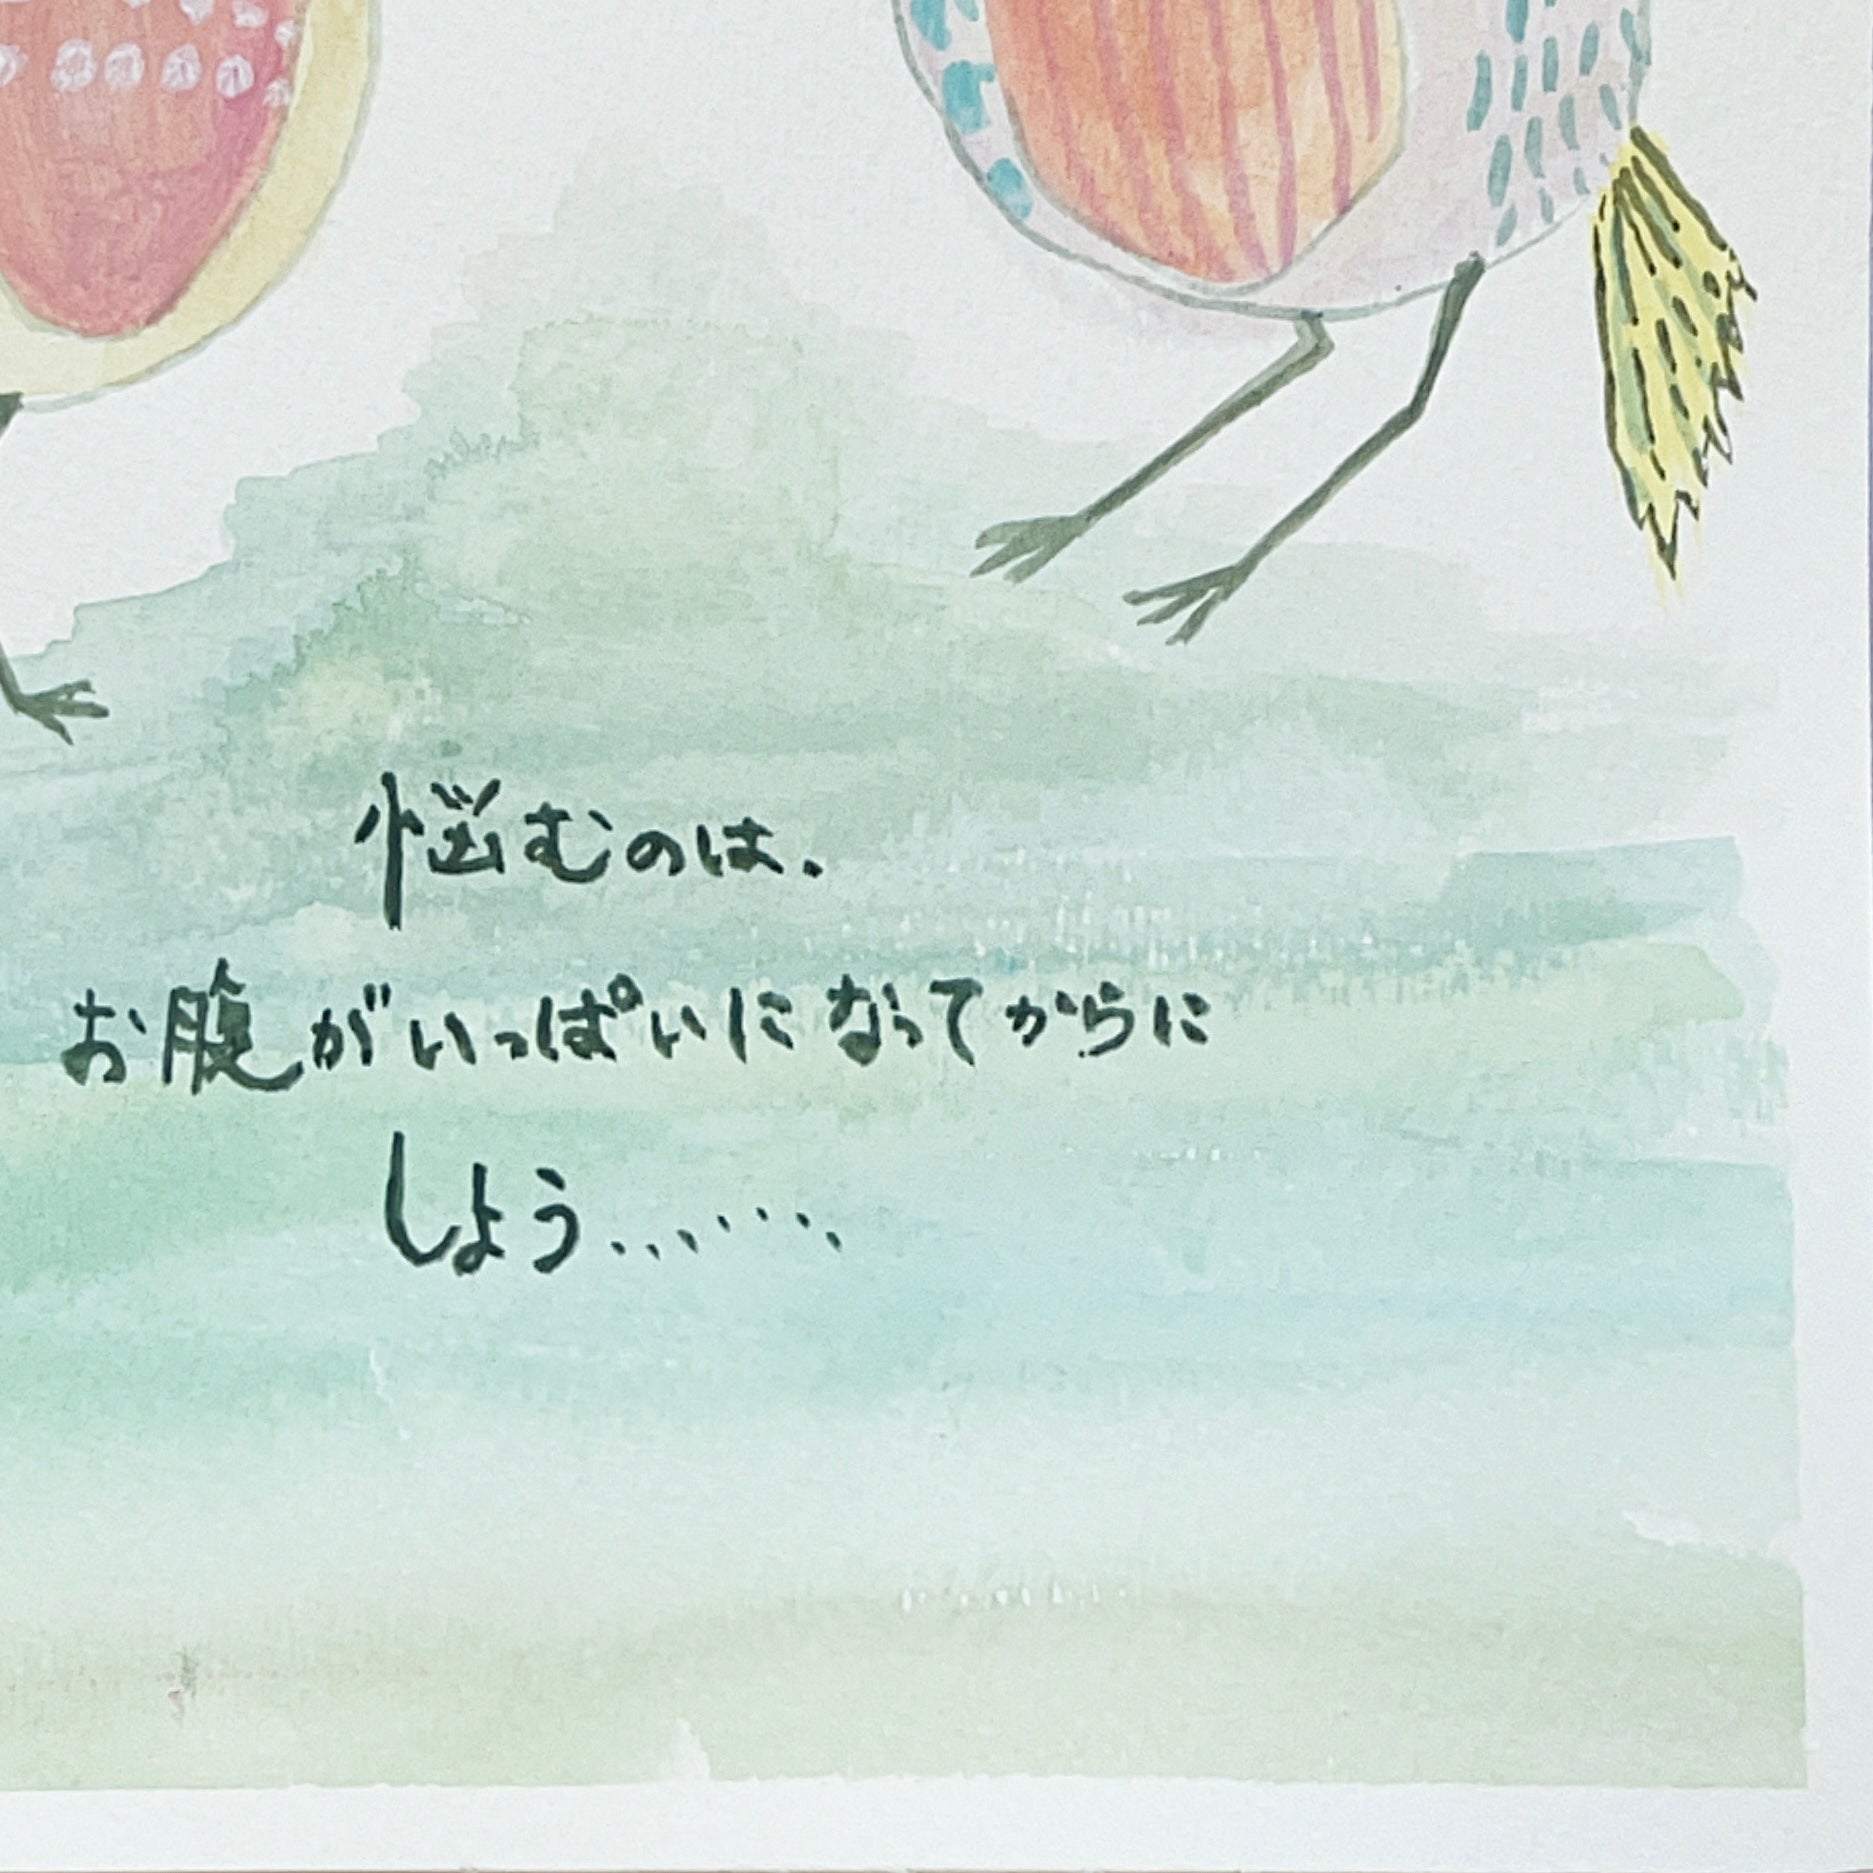 悩むのは.
お腹がいっぱいになってからに
しよう.........